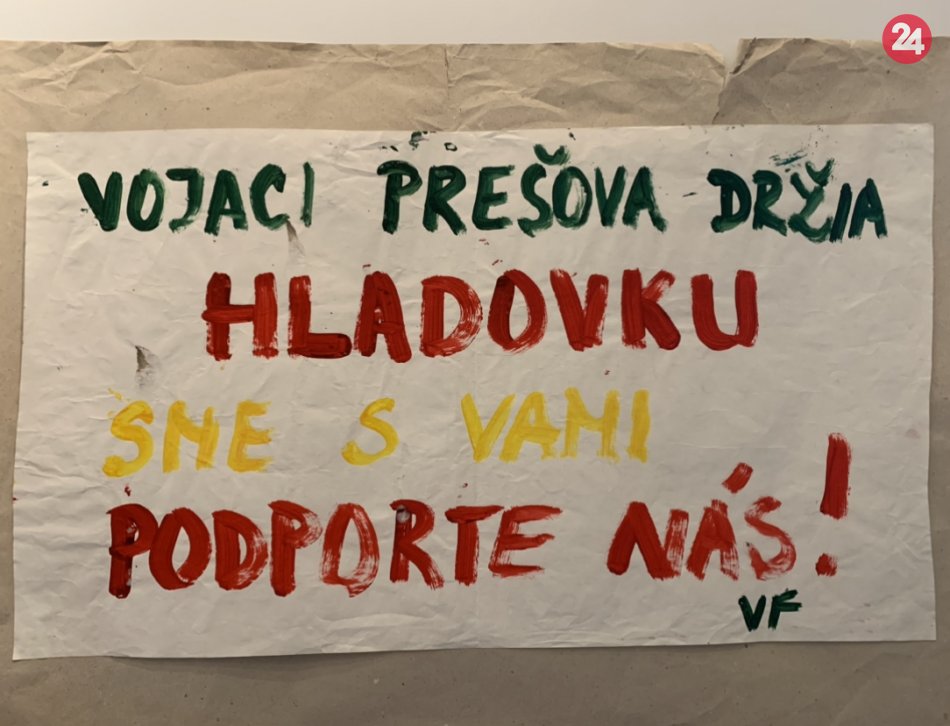 24
VOJACI PREŠOVA DRŽIA
HLADOVKU
SME S VAMI
PODPORTE NÁS!
VF